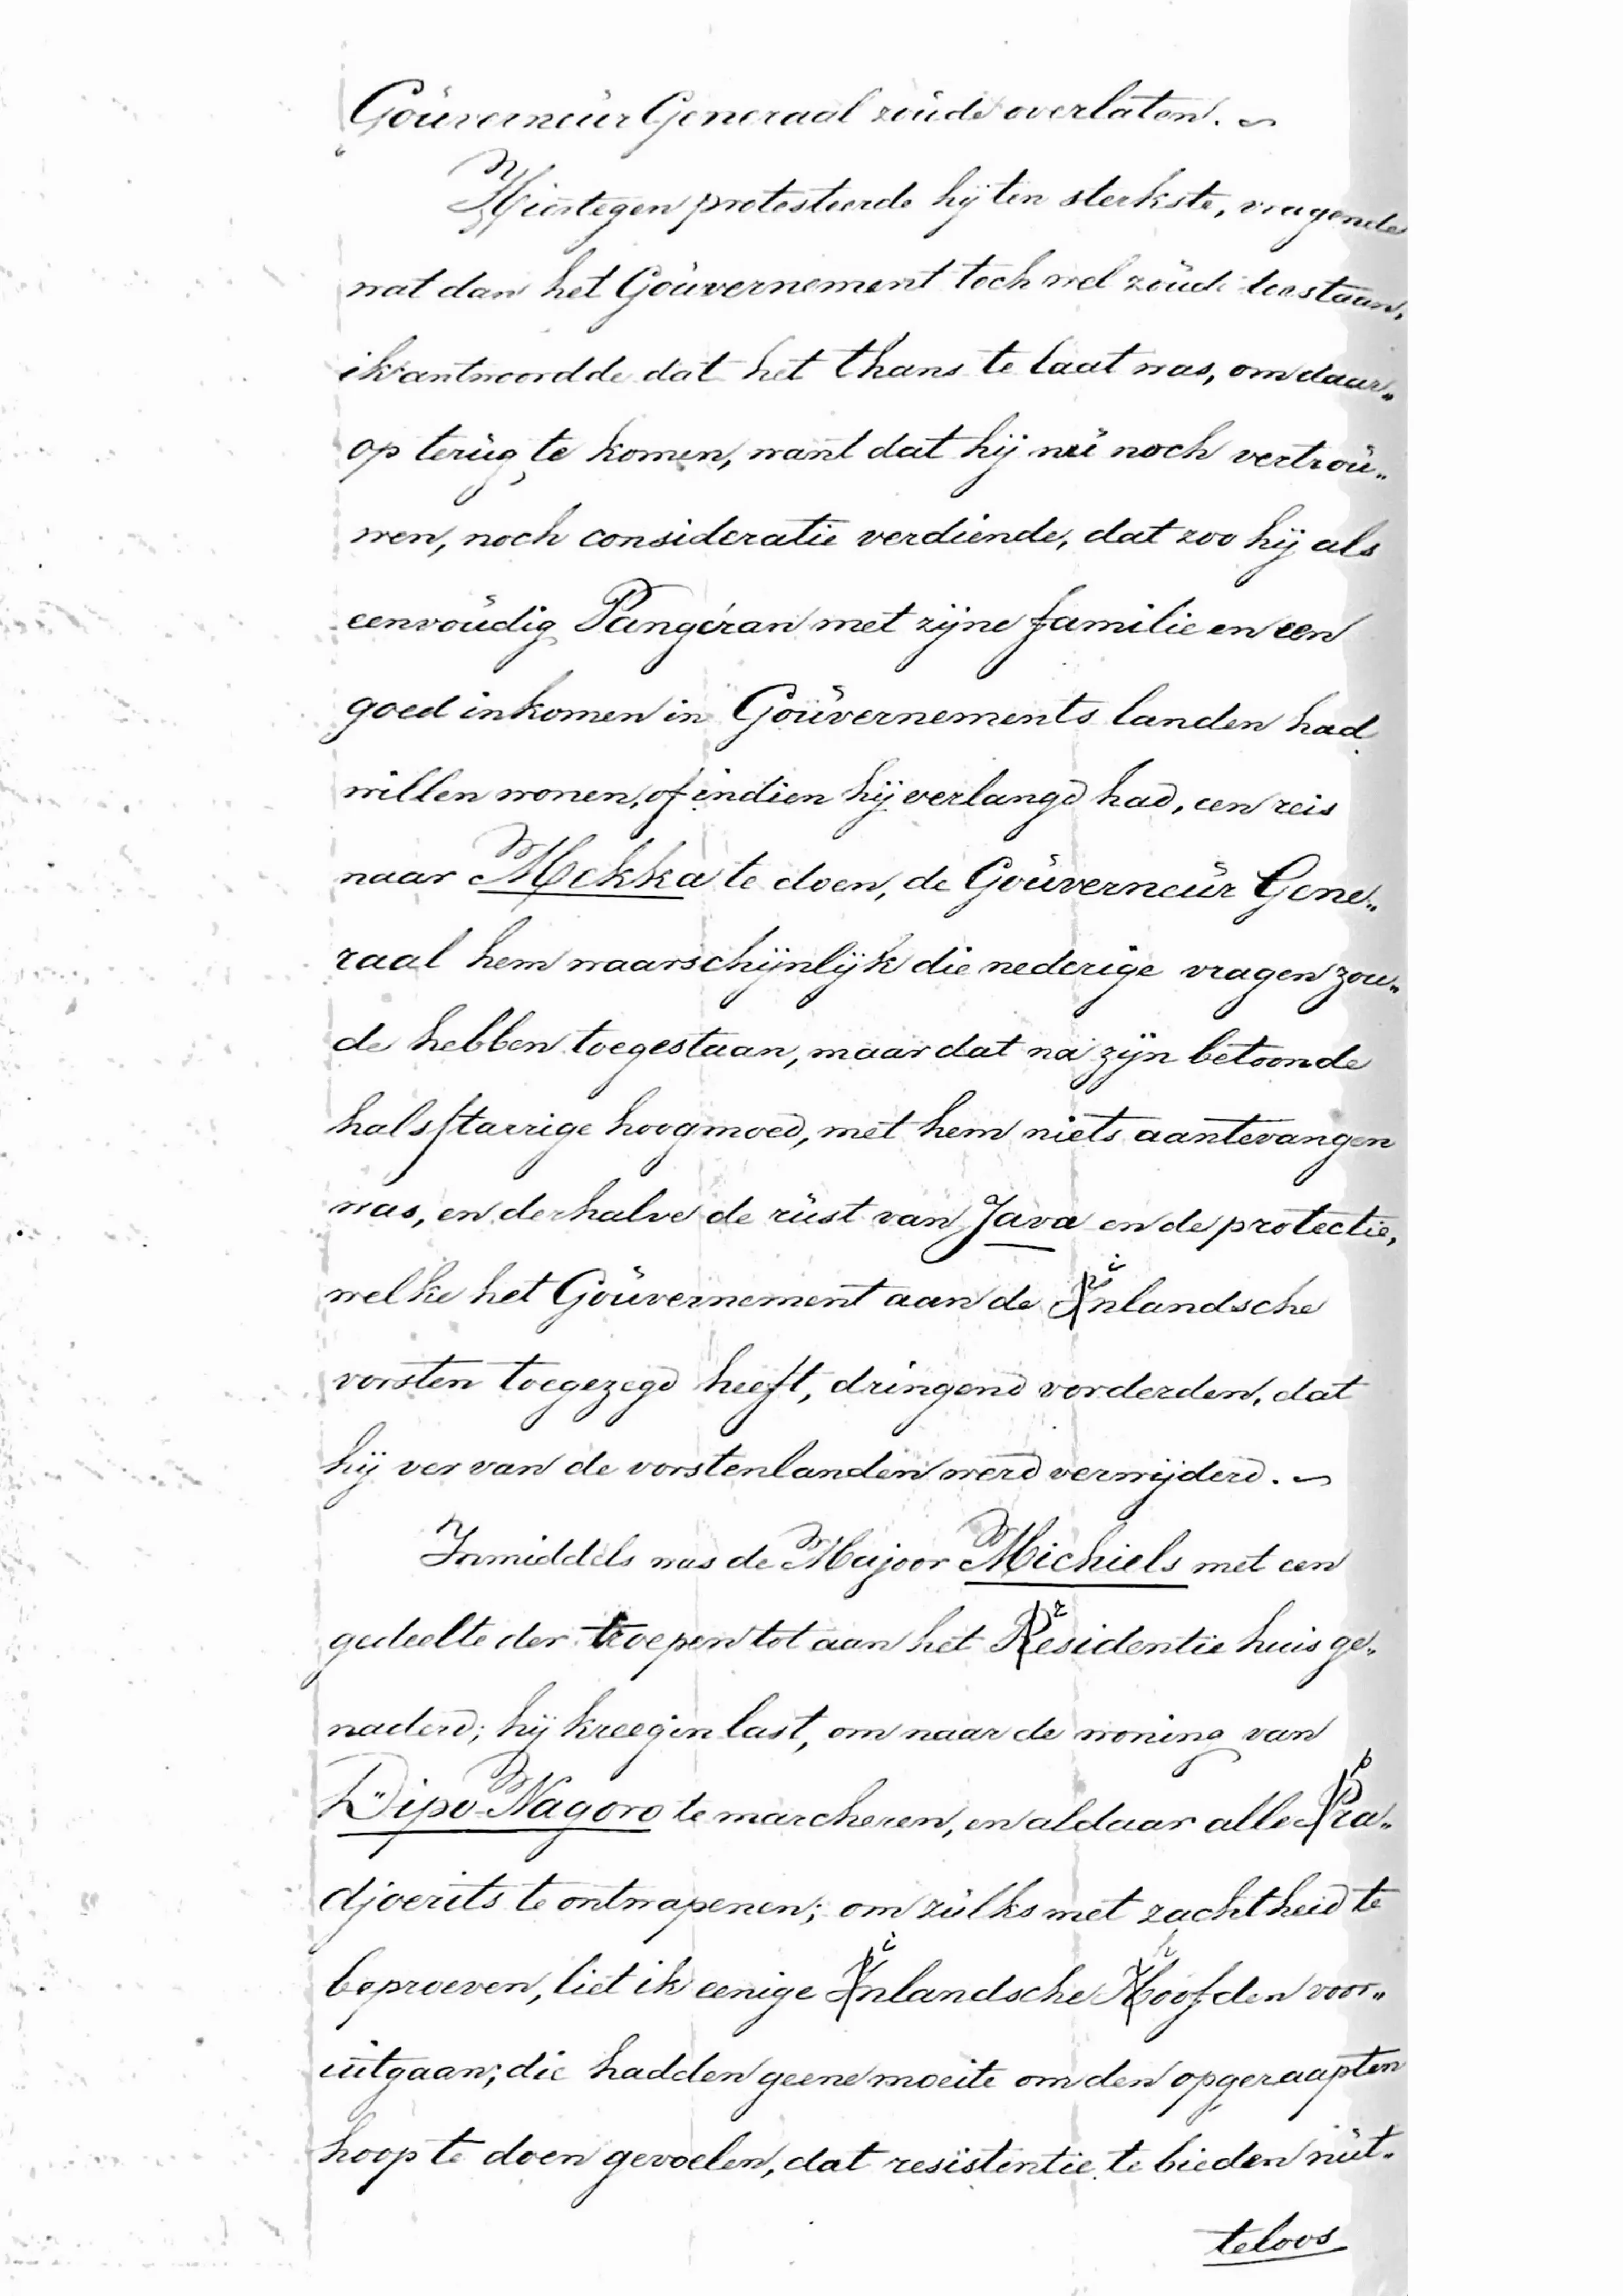 Gouverneur Generaal zoude overlaten. ~
Hiertegen protesteerde hij ten sterkste, vragende
wat dan het Gouvernement toch wel zoude toestaan,
ik antwoordde dat het thans te laat was, om daar„
op terug te komen, want dat hij nu noch vertrou„
wen, noch consideratie verdiende, dat zoo hij als
eenvoudig Pangéran met zijne familie en een
goed inkomen in Gouvernements landen had
willen wonen, of indien hij verlangd had, een reis
naar Mekka te doen, de Gouverneur Gene„
raal hem waarschijnlijk die nederige vragen zou„
de hebben toegestaan, maar dat na zijn betoonde
halsstarrige hoogmoed, met hem niets aantevangen
was, en derhalve de rust van Java en de protectie,
welke het Gouvernement aan de inlandsche
vorsten toegezegd heeft, dringend vorderden, dat
hij ver van de vorstenlanden werd verwijderd. ~
Inmiddels was de Majoor Michiels met een
gedeelte der troepen tot aan het residentie huis ge„
naderd; hij kreeg in last, om naar de woning van
Dipo Nagoro te marcheren, en aldaar alle pra„
djoerits te ontwapenen; om zulks met zachtheid te
beproeven, liet ik eenige inlandsche hoofden voor„
uitgaan; die hadden geene moeite om den opgeraapten
hoop te doen gevoelen, dat resistentie te bieden nut„
teloos